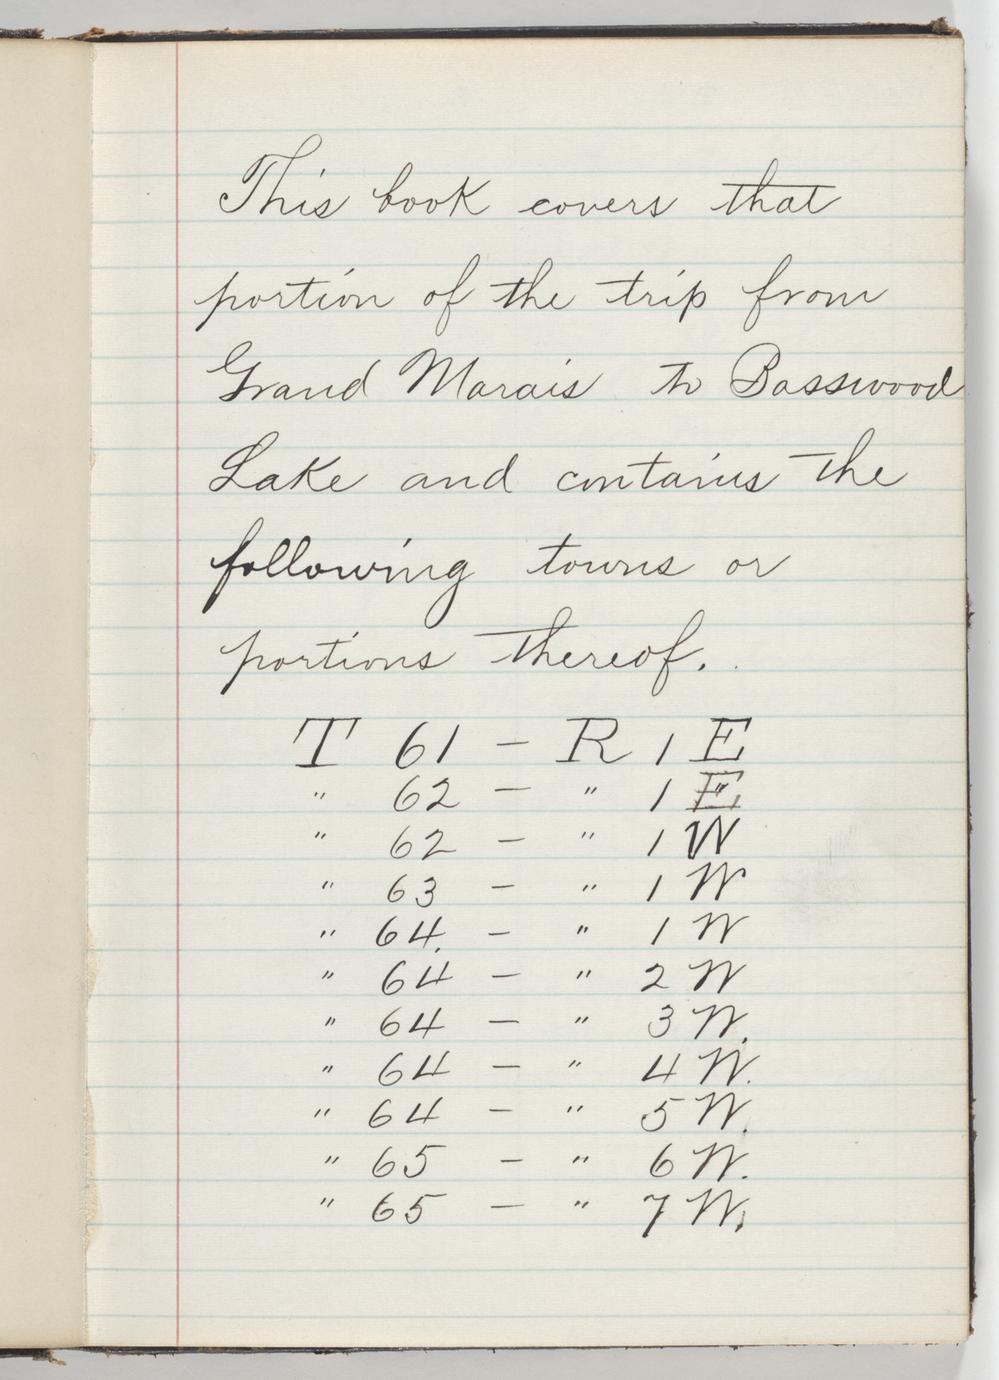 This book covers that
portion of the trip from
Grand Marais to Basswood
Lake and contains the
following towns or
portions thereof.
T 61 — R 1 E
" 62 — " 1 E
" 62 — " 1 W
" 63 — " 1 W
" 64. — " 1 W
" 64 — " 2 W
" 64 — " 3 W.
" 64 — " 4 W.
" 64 — " 5 W.
" 65 — " 6 W.
" 65 — " 7 W.